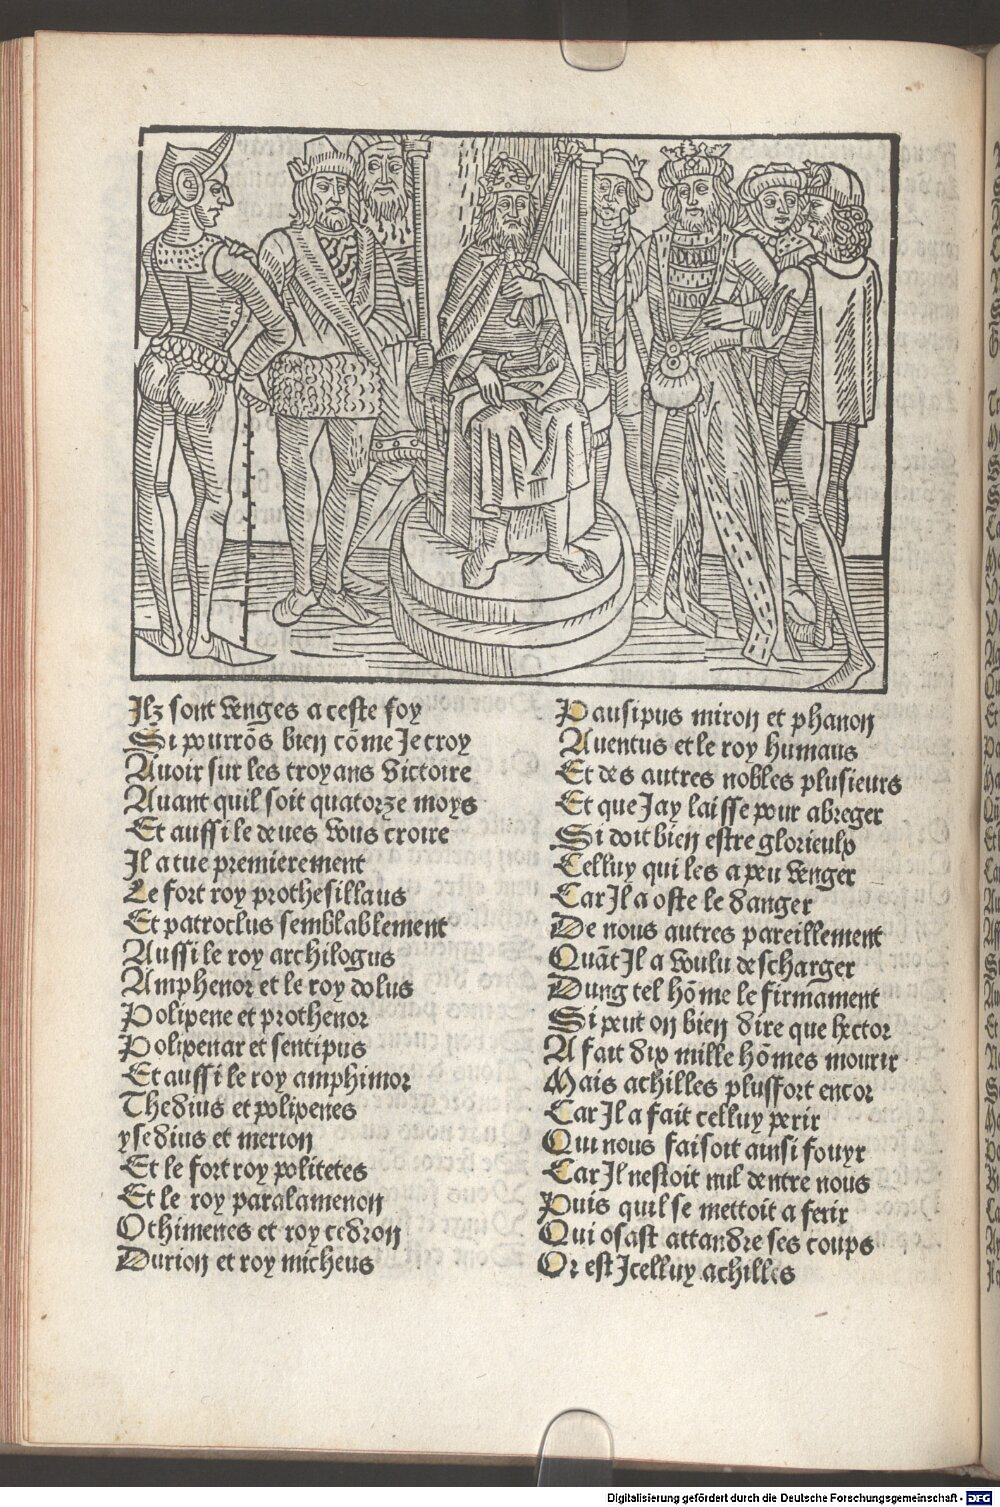 Ilz sont venges a ceste foy
Si pourrõs bien cõme Je croy
Auoir sur les troyans victoire
Auant quil soit quatorze moys
Et aussi le deues vous croire
Il a tue premierement
Le fort roy prothesillaus
Et patroclus semblablement
Aussi le roy archilogus
Amphenor et le roy dolus
Polipene et prothenor
Polipenar et sentipus
Et aussi le roy amphimor
Thedius et polipenes
ysedius et merion
Et le fort roy politetes
Et le roy paralamenon
Othimenes et roy cedron
Durion et roy micheus
Pausipus miron et phanon
Auentus et le roy humaus
Et des autres nobles plusieurs
Et que Jay laisse pour abreger
Si doit bien estre glorieulx
Celluy qui les a peu venger
Car Il a oste le danger
De nous autres pareillement
Quãt Il a voulu descharger
Dung tel hõme le firmament
Si peut on bien dire que hector
A fait dix mille hõmes mourir
Mais achilles plusfort encor
Car Il a fait celluy perir
Qui nous faisoit ainsi fouyr
Car Il nestoit nul dentre nous
Puis quil se mettoit a ferir
Qui osast attandre ses coups
Or est Jcelluy achilles
Digitalisierung gefördert durch die Deutsche Forschungsgemeinschaft - DFG